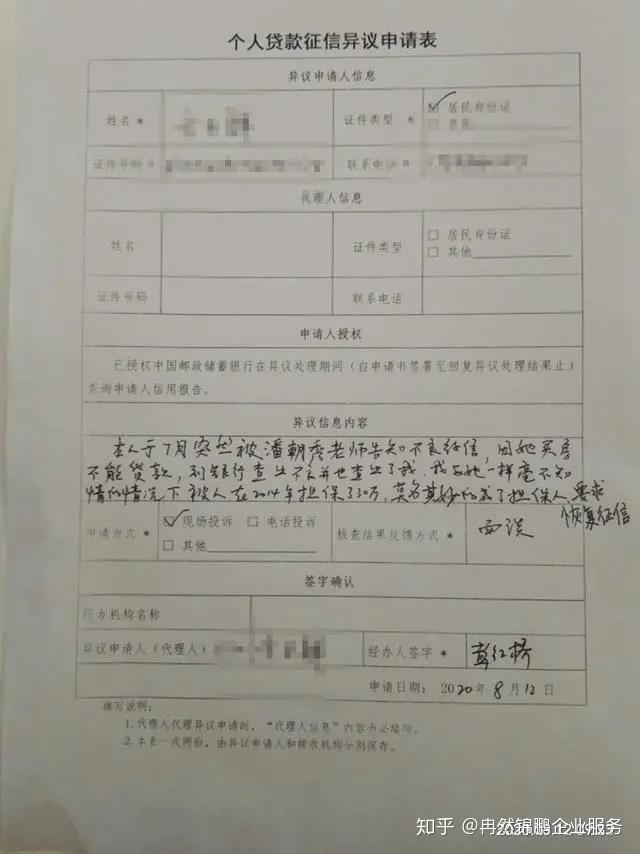 个人贷款征信异议申请表
异议申请人信息
姓名* 证件类型 * ☑ 居民身份证
□ 其他
证件号码* 联系电话*
代理人信息
姓名 证件类型 □ 居民身份证
□ 其他
证件号码 联系电话
申请人授权
已授权中国邮政储蓄银行在异议处理期间（自申请书签署至回复异议处理结果止）
查询申请人信用报告。
异议信息内容
本人于7月突然被潘朝秀老师告知不良征信，因她买房
不能贷款，到银行查出不良并也查出了我，我与她一样毫不知
情的情况下被人在2014年担保了30万，莫名其妙的成了担保人，要求
恢复征信
申请方式* ☑ 现场投诉 □ 电话投诉 核查结果反馈方式* 面谈
□ 其他
签字确认
经办机构名称
异议申请人（代理人） 经办人签字* 彭红桥
申请日期：2020年8月12日
填写说明：
1.代理人代理异议申请时，“代理人信息”内容为必填项。
2.本表一式两份，由异议申请人和接收机构分别保存。
知乎 @冉然锦鹏企业服务